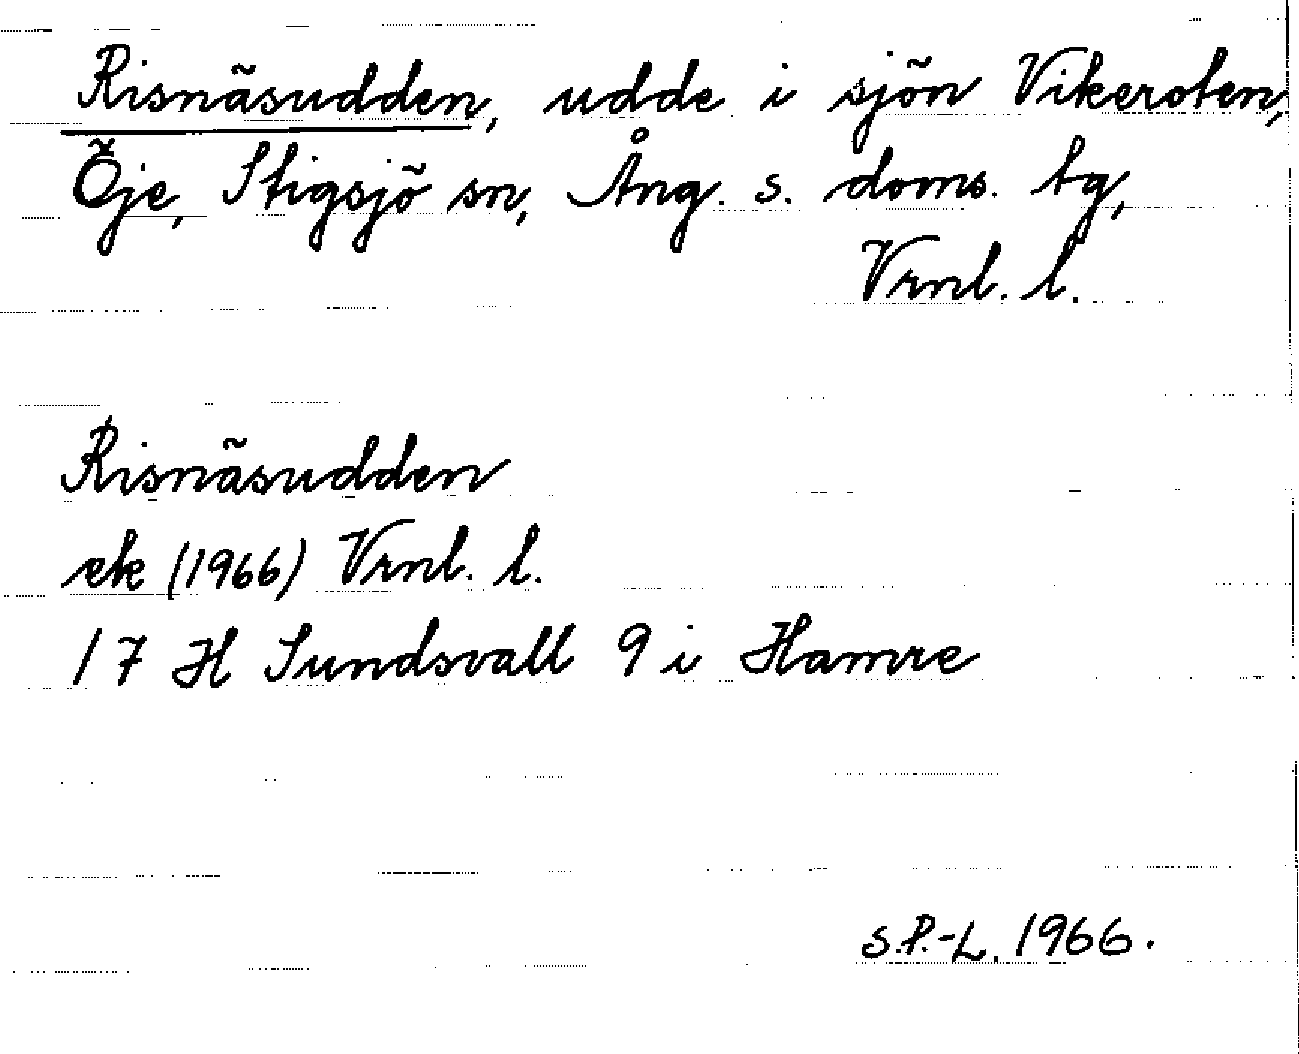 Risnäsudden, udde i sjön Vikeroten,
Öje, Stigsjö sn, Ång. s. doms. tg,
Vrnl. l.
Risnäsudden
ek (1966) Vrnl. l.
17 H Sundsvall 9 i Hamre
S.P.-L. 1966.